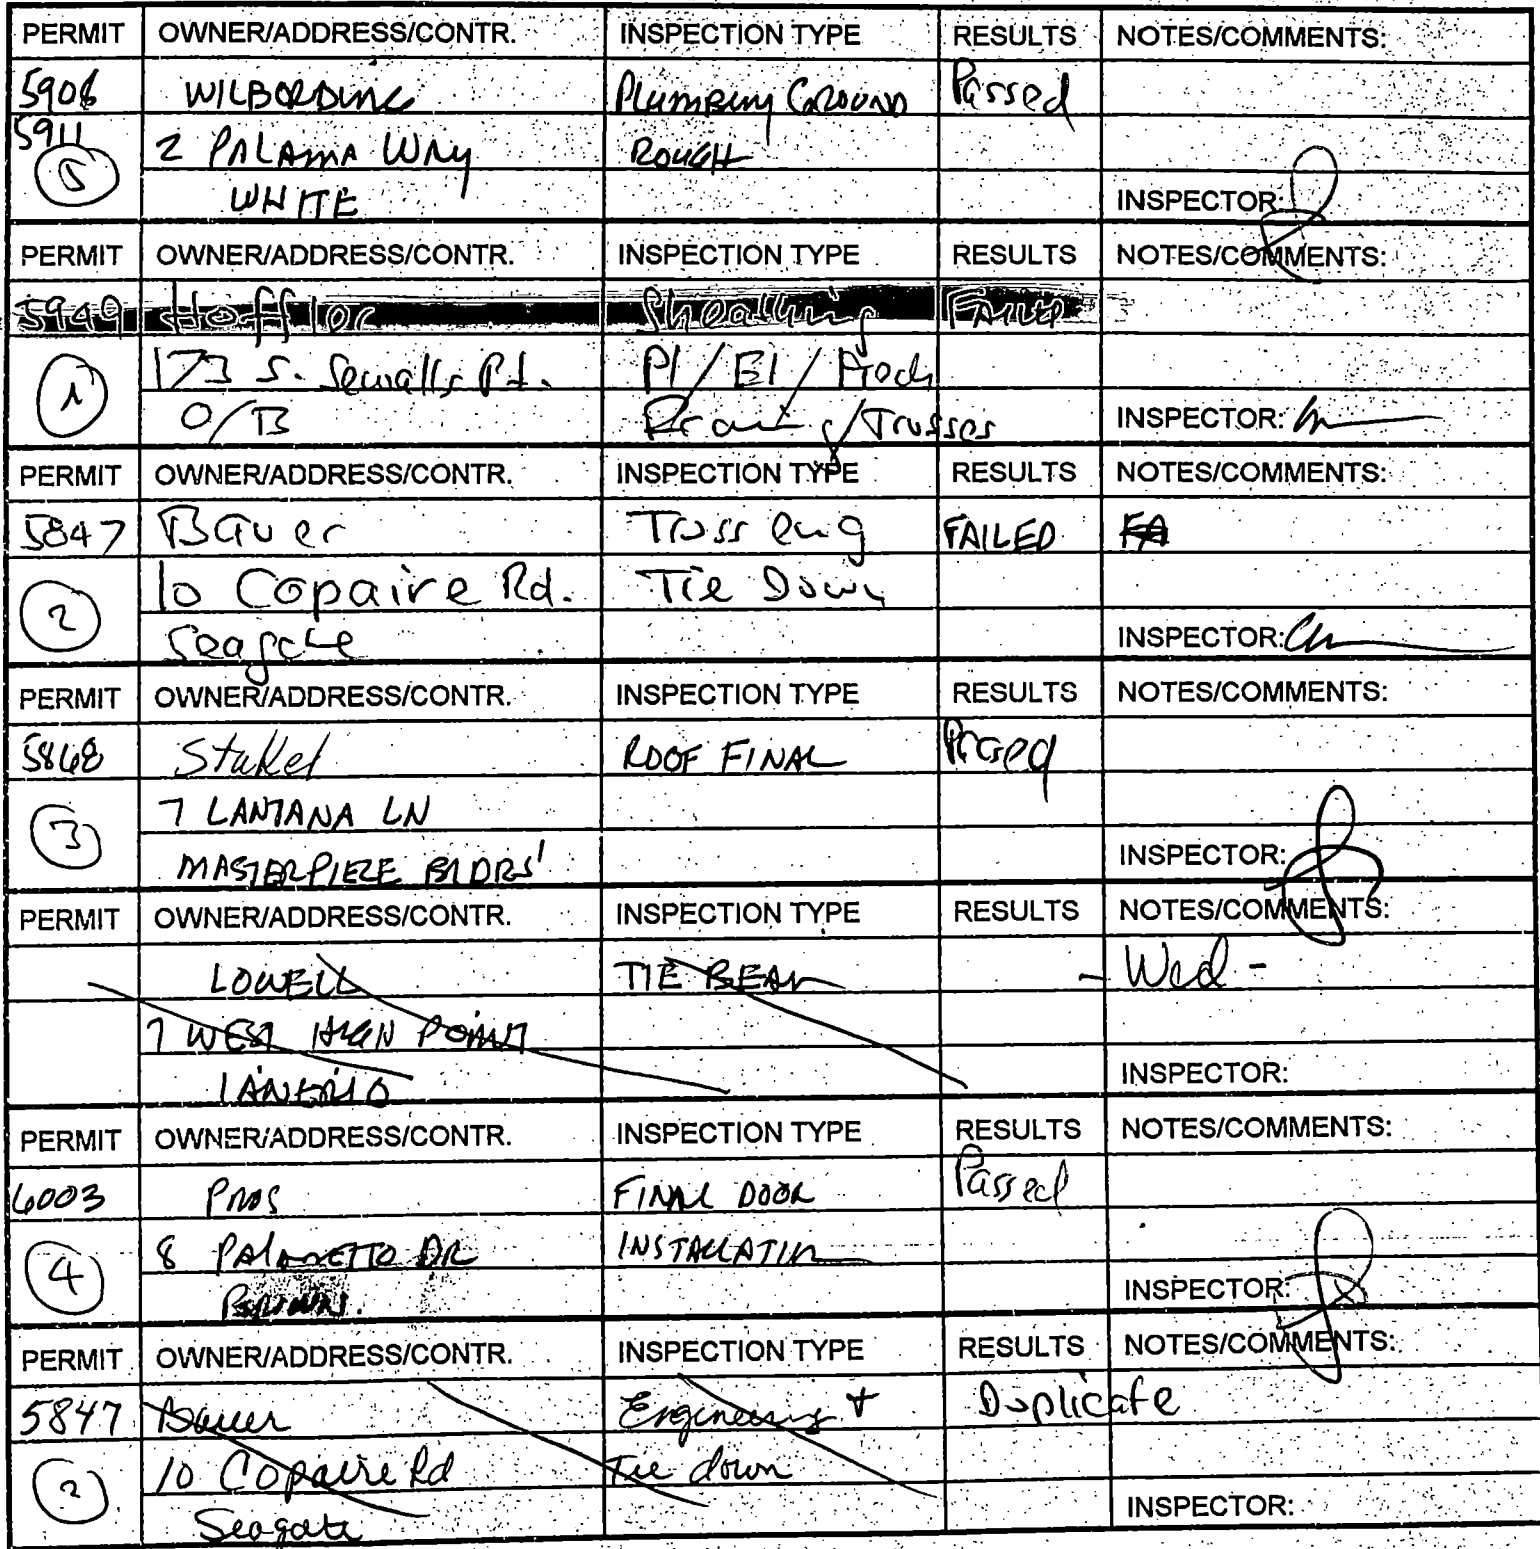 PERMIT OWNER/ADDRESS/CONTR. INSPECTION TYPE RESULTS NOTES/COMMENTS:
5906 WILBORDING Plumbing Ground Passed
5911 2 PALAMA WAY ROUGH
5 WHITE INSPECTOR:
PERMIT OWNER/ADDRESS/CONTR. INSPECTION TYPE RESULTS NOTES/COMMENTS:
5949 Hoffler Sheathing Failed
1 173 S. Sewalls Pt. Pl/El/Mech
O/B /Trusses INSPECTOR:
PERMIT OWNER/ADDRESS/CONTR. INSPECTION TYPE RESULTS NOTES/COMMENTS:
5847 Bauer Truss eng FAILED FA
2 10 Copaire Rd. Tie Down
Seagate INSPECTOR:
PERMIT OWNER/ADDRESS/CONTR. INSPECTION TYPE RESULTS NOTES/COMMENTS:
5868 Stukel ROOF FINAL Passed
3 7 LANTANA LN
MASTERPIEZE BLDRS' INSPECTOR:
PERMIT OWNER/ADDRESS/CONTR. INSPECTION TYPE RESULTS NOTES/COMMENTS:
LOWELL TIE BEAM - Wed -
7 WEST HIGH POINT
INSPECTOR:
PERMIT OWNER/ADDRESS/CONTR. INSPECTION TYPE RESULTS NOTES/COMMENTS:
6003 FINAL DOOR Passed
4 8 PALMETTO DR INSTALLATION
INSPECTOR:
PERMIT OWNER/ADDRESS/CONTR. INSPECTION TYPE RESULTS NOTES/COMMENTS:
5847 Bauer Engineering + Duplicate
2 10 Copaire Rd Tie down
Seagate INSPECTOR: